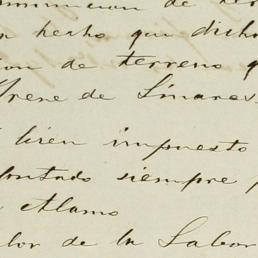 han hecho que dicho
ion de terreno q
Irene de Linares
bien impuesto
ontado siempre p
Alamo
lor de la Labor